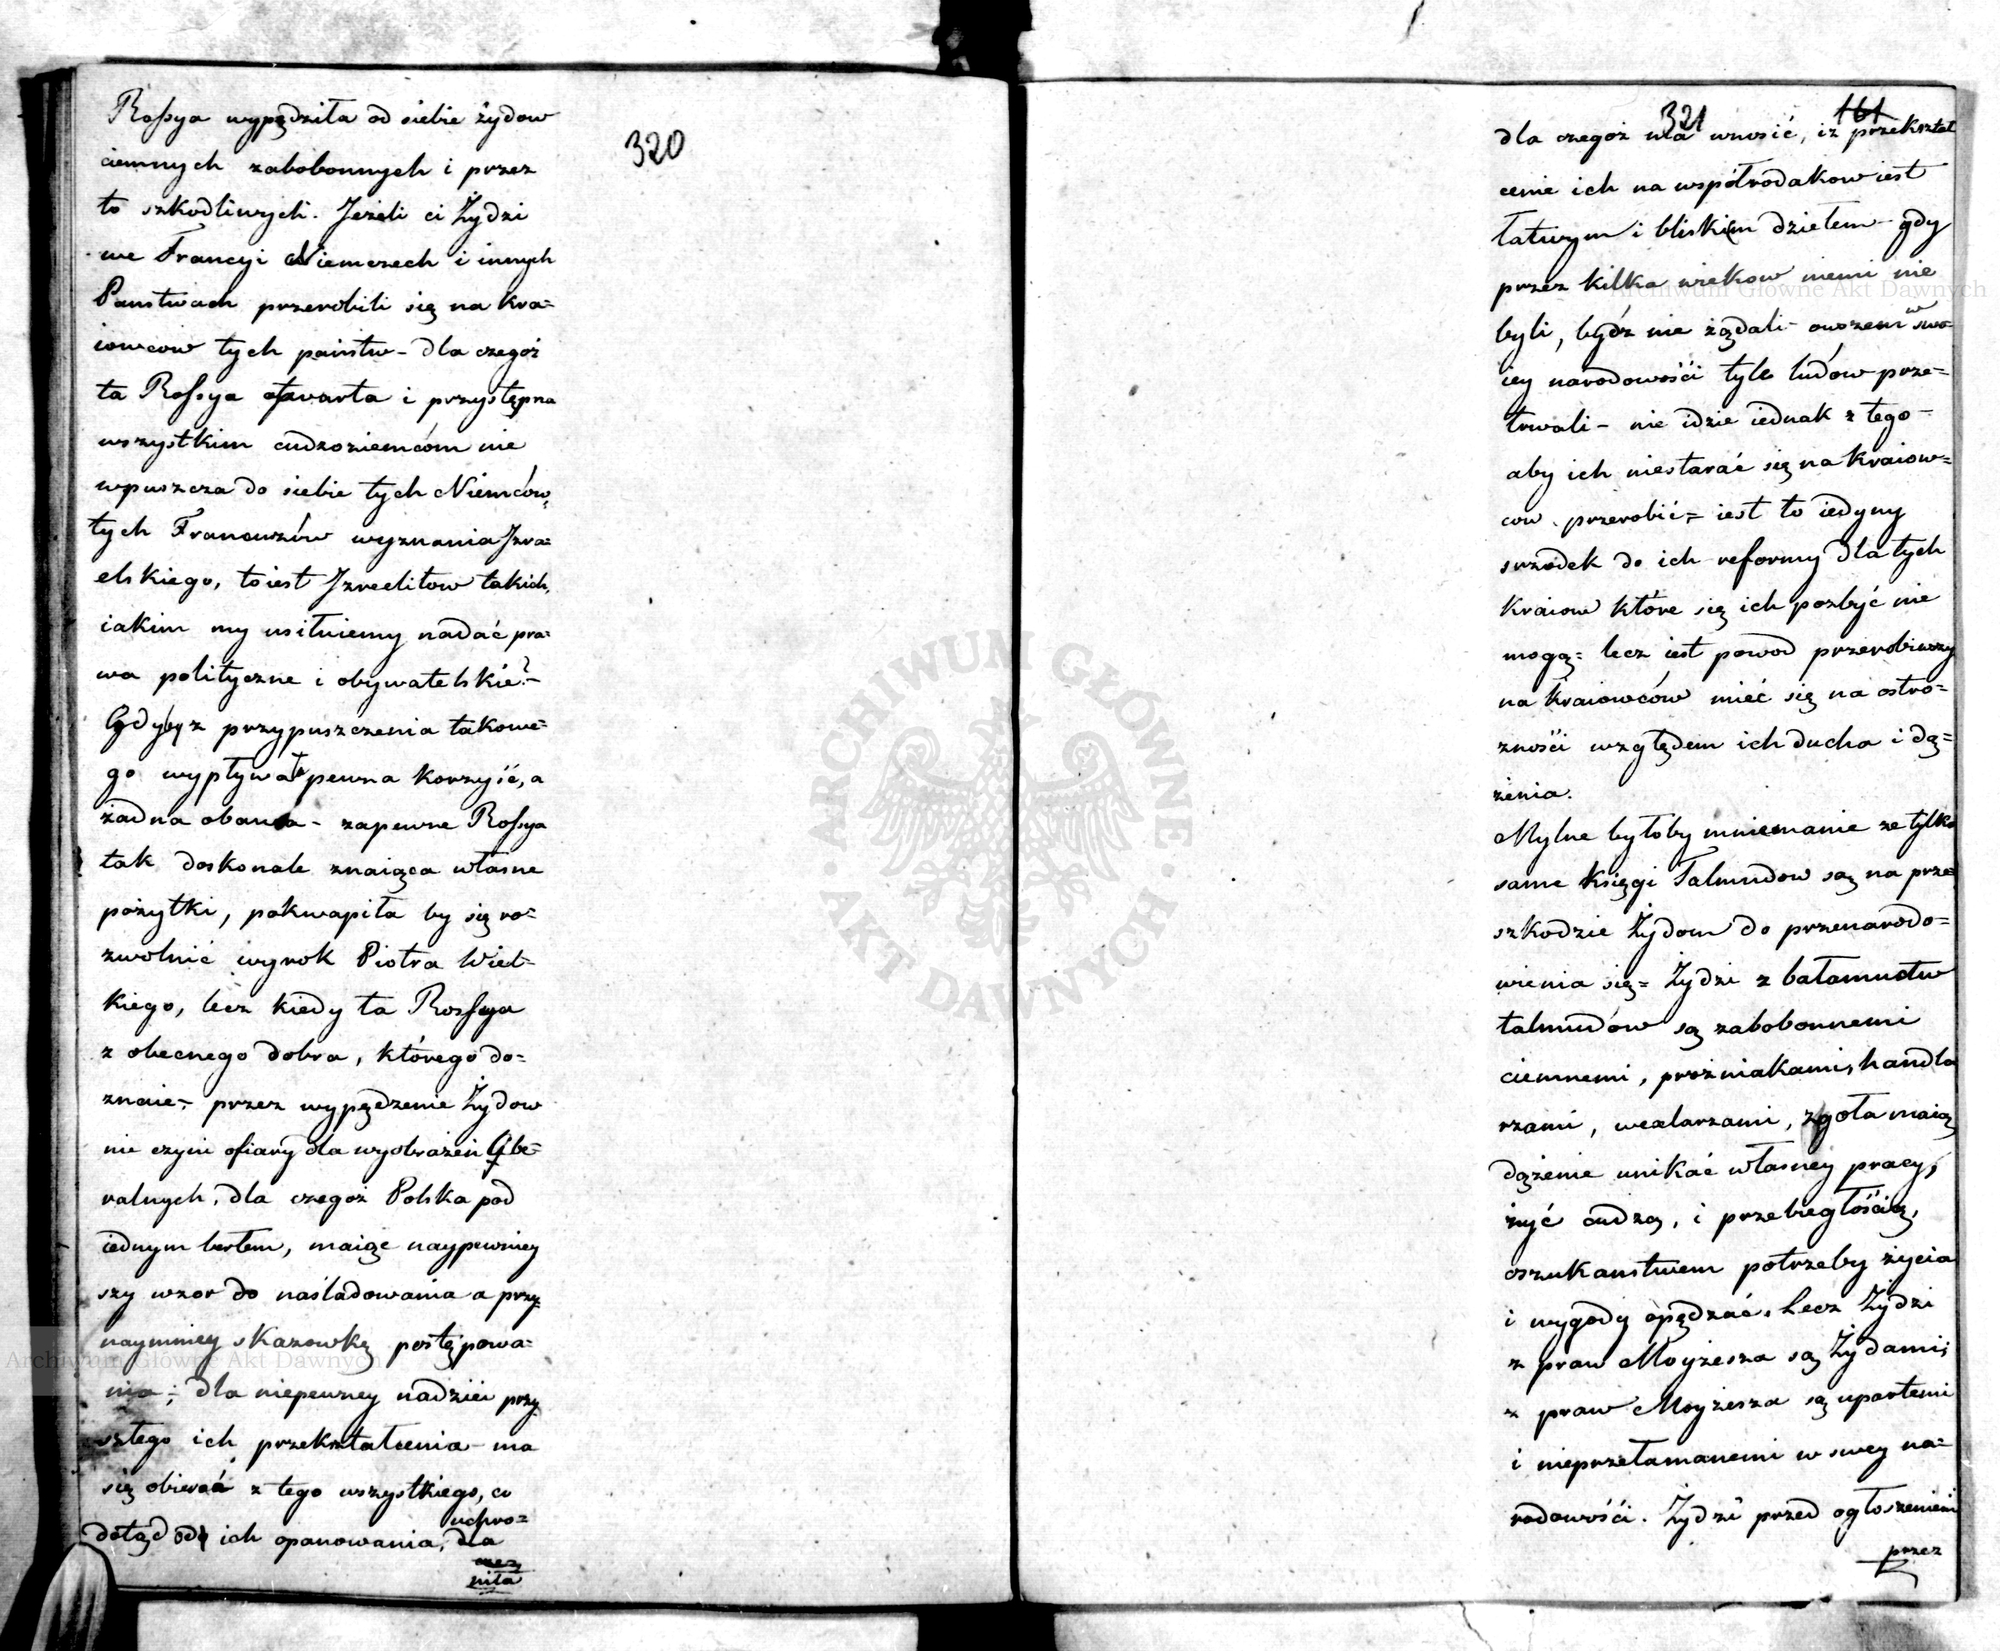 320
Rossya wypędziła od siebie żydow
ciemnych zabobonnych i przez
to szkodliwych. Jeżeli ci Żydzi
we Francyi Niemczech i innych
Panstwach przerobili się na kra=
iowcow tych państw - dla czegoż
ta Rossya otwarta i przystępna
wszystkim cudzoziemcóm nie
wpuszcza do siebie tych Niemców,
tych Francuzów wyznania Izra=
elskiego, to iest Izraelitow takich,
iakim my usiłuiemy nadać pra=
wa polityczne i obywatelskie? -
Gdyby z przypuszczenia takowe=
go wypływała pewna korzyść, a
żadna obawa - zapewne Rossya
tak doskonale znaiąca własne
pożytki, pokwapiła by się ro=
zwolnić wyrok Piotra Wiel=
kiego, lecz kiedy ta Rossya
z obecnego dobra, którego do=
znaie - przez wypędzenie Żydow
nie czyni ofiary dla wyobrażeń libe=
ralnych, dla czegoż Polska pod
iednym berłem, maiąc naypewniey
szy wzor do naśladowania a przy=
naymniey skazowkę postępowa=
nia; dla niepewney nadziei przy
szłego ich przekształcenia - ma
się obierać z tego wszystkiego, co
dotąd od ich opanowania, uchro=
niła
321
161
dla czegoż wnosić, iż przekształ
cenie ich na wspołrodakow iest
łatwym i bliskim dziełem - gdy
przez kilka wiekow niemi nie
byli, bydź nie żądali - owszem w swo=
iey narodowości tyle ludów prze=
trwali - nie idzie iednak z tego -
aby ich niestarać się na kraiow=
cow przerobić = iest to iedyny
srzodek do ich reformy dla tych
kraiow które się ich pozbyć nie
mogą = lecz iest powod przerobiwszy
na kraiowców mieć się na ostro=
żności względem ich ducha i dą=
żenia.
Mylne byłoby mniemanie ze tylko
same księgi Talmudow są na prze=
szkodzie Żydom do przenarodo=
wienia się = Żydzi z bałamuctw
talmudów są zabobonnemi
ciemnemi, prożniakami, handla
rzami, wexlarzami, zgoła maią
dążenie unikać własney pracy,
żyć cudzą, i przebiegłością,
oszukanstwem potrzeby życia
i wygody opędzać. Lecz Żydzi
z praw Moyżesza są Żydami;
z praw Moyżesza są upartemi
i nieprzełamanemi w swey na=
rodowości. Żydzi przed ogłoszeniem
przez